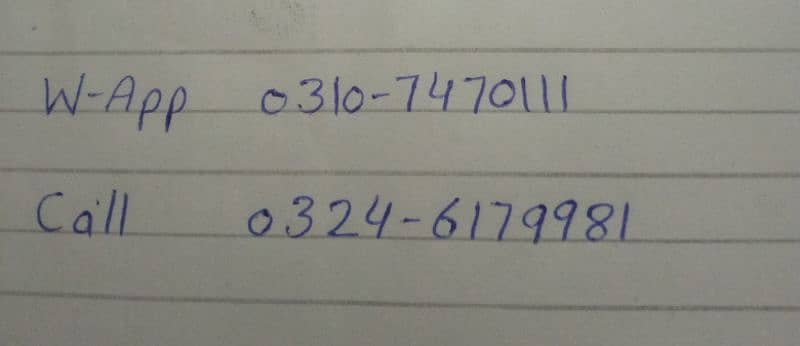 W-App 0310-7470111
Call 0324-6179981